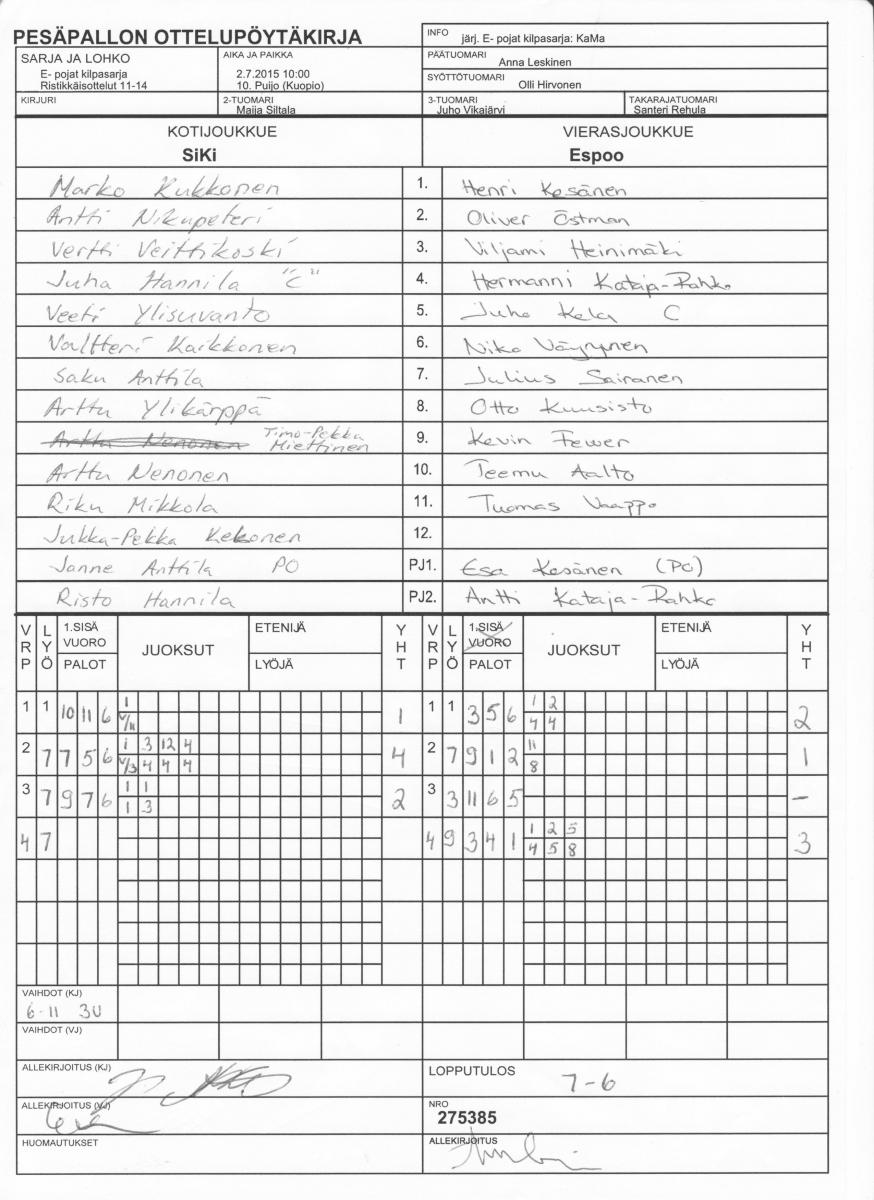 PESÄPALLON OTTELUPÖYTÄKIRJA
INFO järj. E- pojat kilpasarja: KaMa
SARJA JA LOHKO
E- pojat kilpasarja
Ristikkäisottelut 11-14
AIKA JA PAIKKA
2.7.2015 10:00
10. Puijo (Kuopio)
PÄÄTUOMARI Anna Leskinen
SYÖTTÖTUOMARI Olli Hirvonen
KIRJURI
2-TUOMARI Maija Siltala
3-TUOMARI Juho Vikajärvi
TAKARAJATUOMARI Santeri Rehula
KOTIJOUKKUE VIERASJOUKKUE
SiKi Espoo
Marko Kukkonen 1. Henri Kesänen
Antti Nikupeteri 2. Oliver Östman
Vertti Veittikoski 3. Viljami Heinimäki
Juha Hannila "C" 4. Hermanni Kataja-Rahko
Veeti Ylisuvanto 5. Juho Kela C
Valtteri Karkkonen 6. Niko Väyrynen
Saku Anttila 7. Julius Sairanen
Arttu Ylikärppä 8. Otto Kuusisto
Arttu Nenonen Timo-Pekka Miettinen 9. Kevin Fewer
Arttu Nenonen 10. Teemu Aalto
Riku Mikkola 11. Tuomas Vaappo
Jukka-Pekka Kekonen 12.
Janne Anttila PO PJ1. Esa Kesänen (PO)
Risto Hannila PJ2. Antti Kataja-Rahko
VRP LYÖ 1.SISÄ VUORO PALOT JUOKSUT ETENIJÄ LYÖJÄ YHT VRP LYÖ 1.SISÄ VUORO PALOT JUOKSUT ETENIJÄ LYÖJÄ YHT
1 1 10 11 6 1 1 1 1 3 5 6 1 2 2
V/11 4 4
2 7 7 5 6 1 3 12 4 4 2 7 9 1 2 11 1
V/3 4 4 4 8
3 7 9 7 6 1 1 2 3 3 11 6 5 –
1 3
4 7 4 9 3 4 1 1 2 5 3
4 5 8
VAIHDOT (KJ)
6-11 3U
VAIHDOT (VJ)
ALLEKIRJOITUS (KJ)
LOPPUTULOS 7-6
ALLEKIRJOITUS (VJ)
NRO
275385
HUOMAUTUKSET
ALLEKIRJOITUS